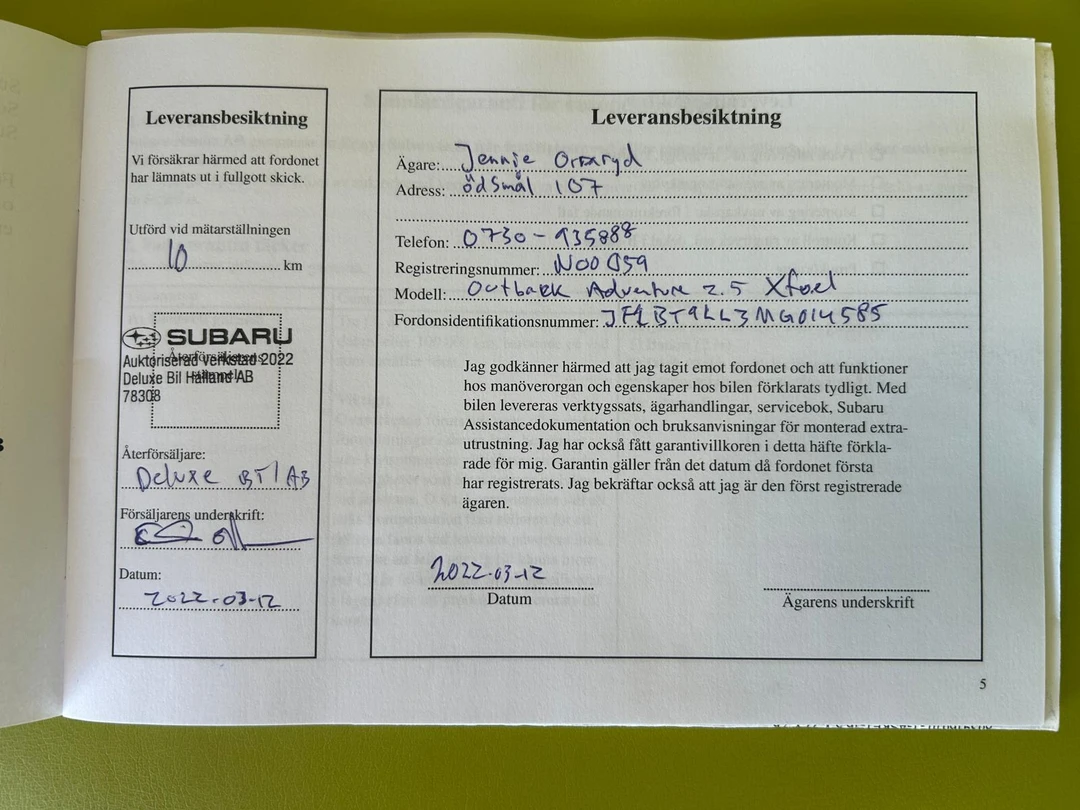 Leveransbesiktning
Vi försäkrar härmed att fordonet
har lämnats ut i fullgott skick.
Utförd vid mätarställningen
10 km
SUBARU
Auktoriserad verkstad 2022
Deluxe Bil Halland AB
78308
Återförsäljare:
Deluxe Bil AB
Försäljarens underskrift:
Datum:
2022-03-12
Leveransbesiktning
Ägare: Jennie
Adress: ödsmål 107
Telefon: 0730-935888
Registreringsnummer:
Modell: Outback Adventure 2.5 Xfuel
Fordonsidentifikationsnummer:
Jag godkänner härmed att jag tagit emot fordonet och att funktioner
hos manöverorgan och egenskaper hos bilen förklarats tydligt. Med
bilen levereras verktygssats, ägarhandlingar, servicebok, Subaru
Assistancedokumentation och bruksanvisningar för monterad extra-
utrustning. Jag har också fått garantivillkoren i detta häfte förkla-
rade för mig. Garantin gäller från det datum då fordonet första
har registrerats. Jag bekräftar också att jag är den först registrerade
ägaren.
2022-03-12
Datum
Ägarens underskrift
5